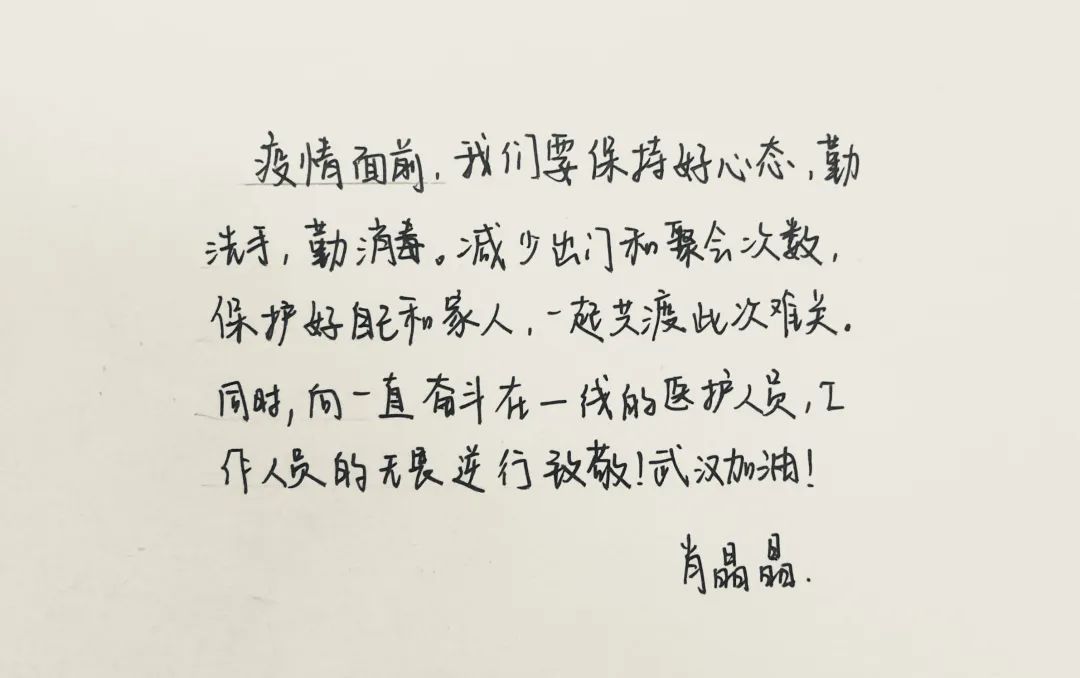 疫情面前，我们要保持好心态，勤
洗手，勤消毒。减少出门和聚会次数，
保护好自己和家人，一起共渡此次难关。
同时，向一直奋斗在一线的医护人员，工
作人员的无畏逆行致敬！武汉加油！
肖晶晶.